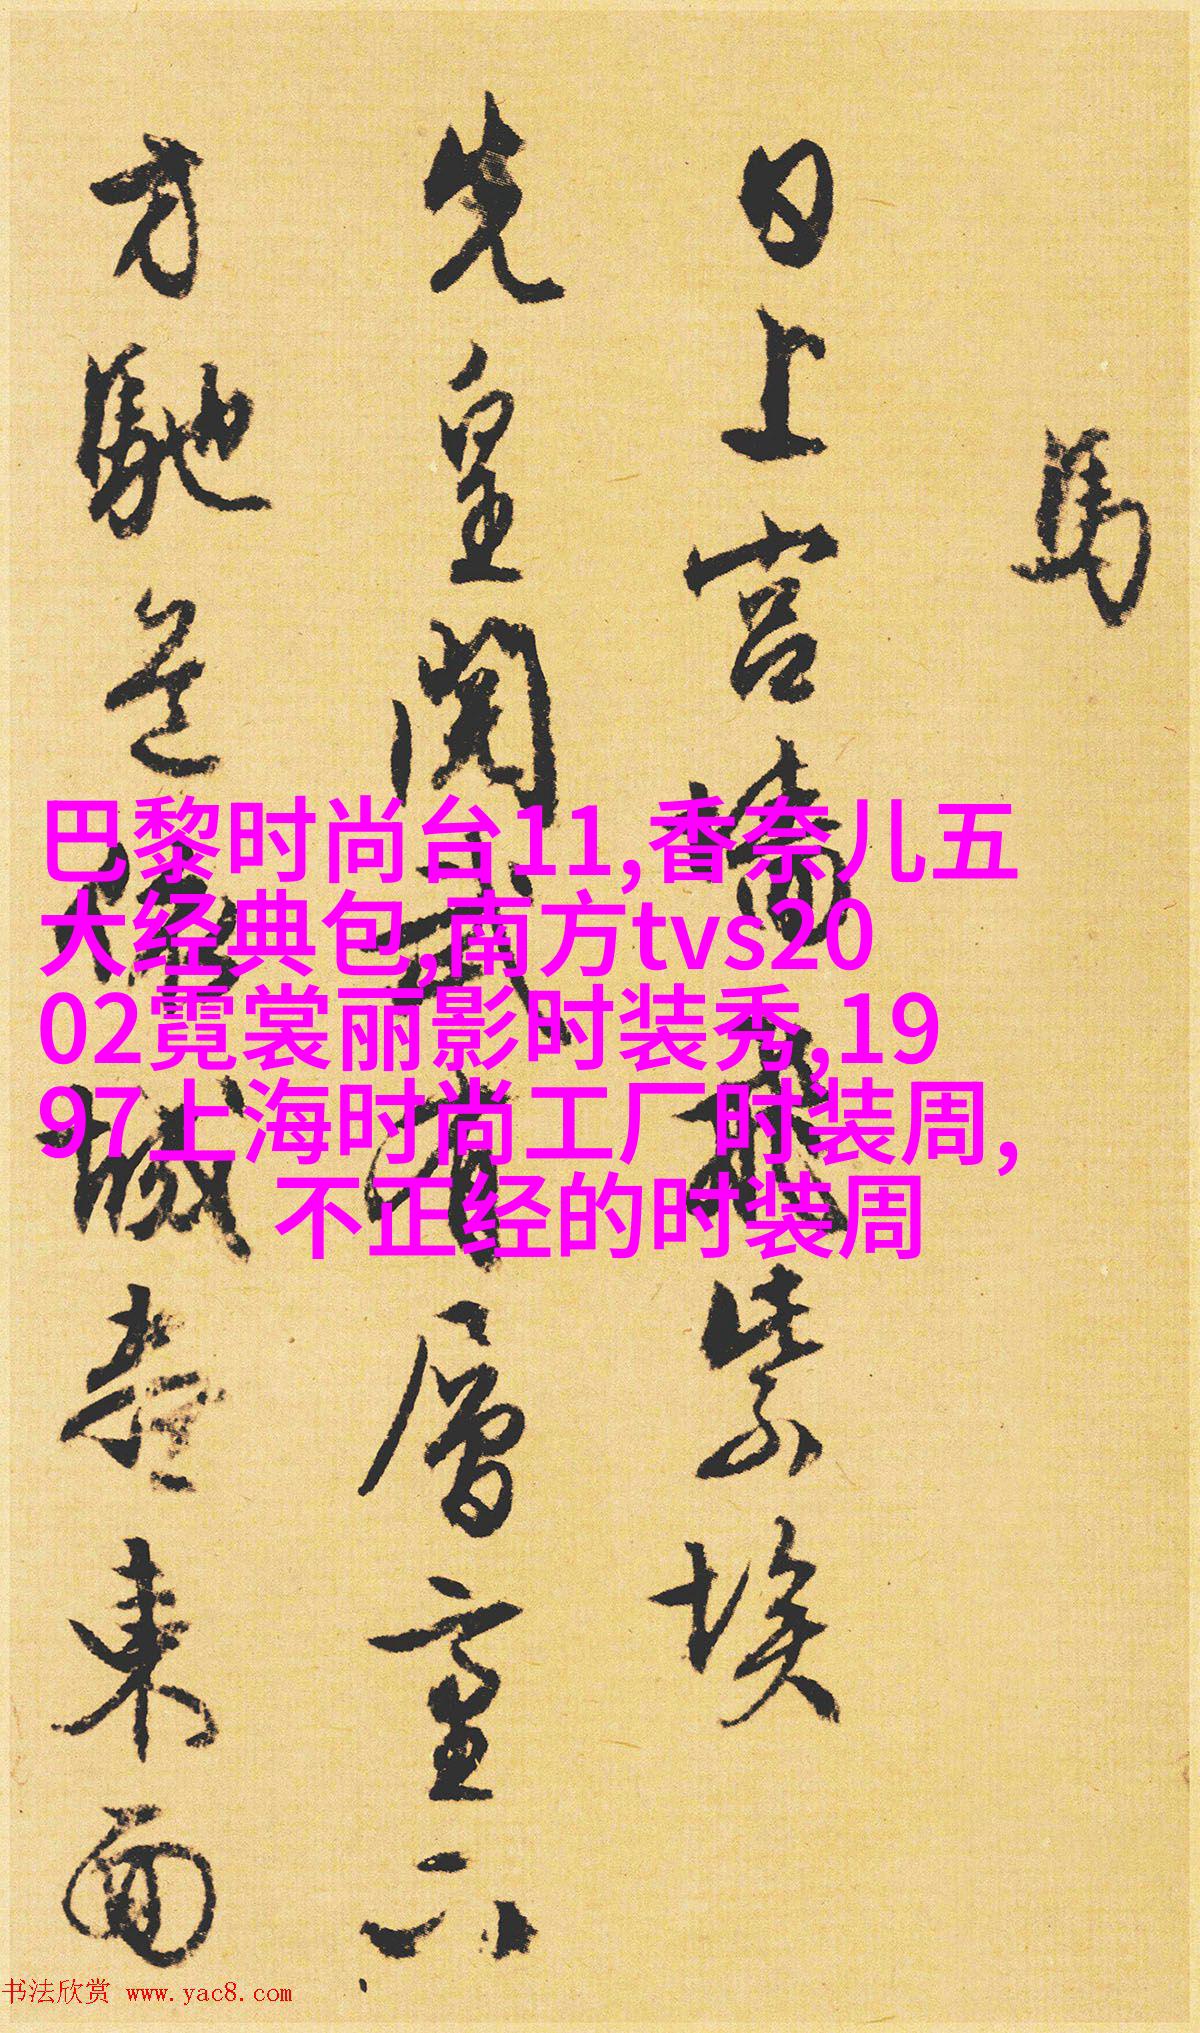 馬
日上宮墻飛紫埃
先皇閱武有層臺下
方馳道城東面
巴黎时尚台11,香奈儿五
大经典包,南方tvs20
02霓裳丽影时装秀,19
97上海时尚工厂时装周,
不正经的时装周
书法欣赏 www.yac8.com